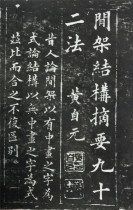 間架結構摘要九十
二法 黃自元
昔人論間架以有中畫之字為
式論結構以無中畫之字為式
茲比而合之不復區別